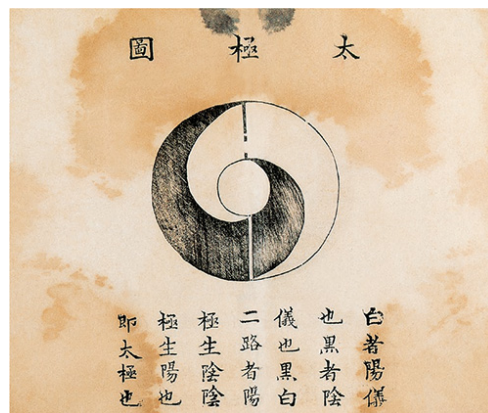 太極圖
白者陽儀
也黑者陰
儀也黑白
二路者陽
極生陰陰
極生陽也
即太極也